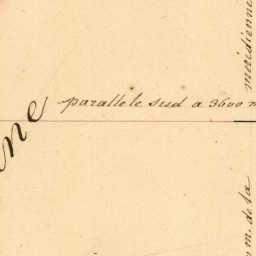 parallele sud a 3600 m
ne
meridienne
m. de la